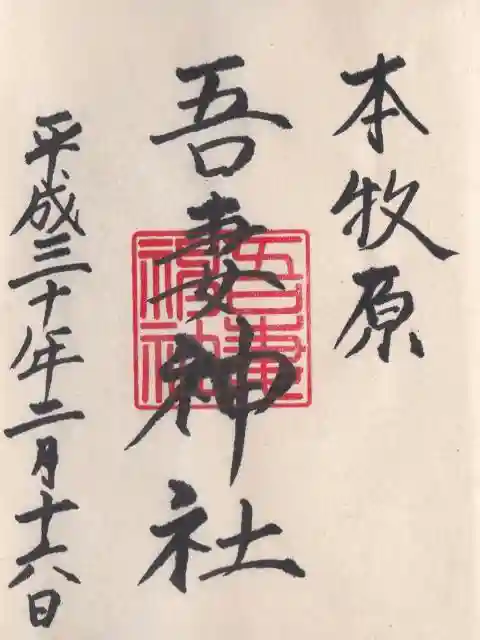 本牧原
吾妻神社
吾妻
神社
平成三十年二月十六日